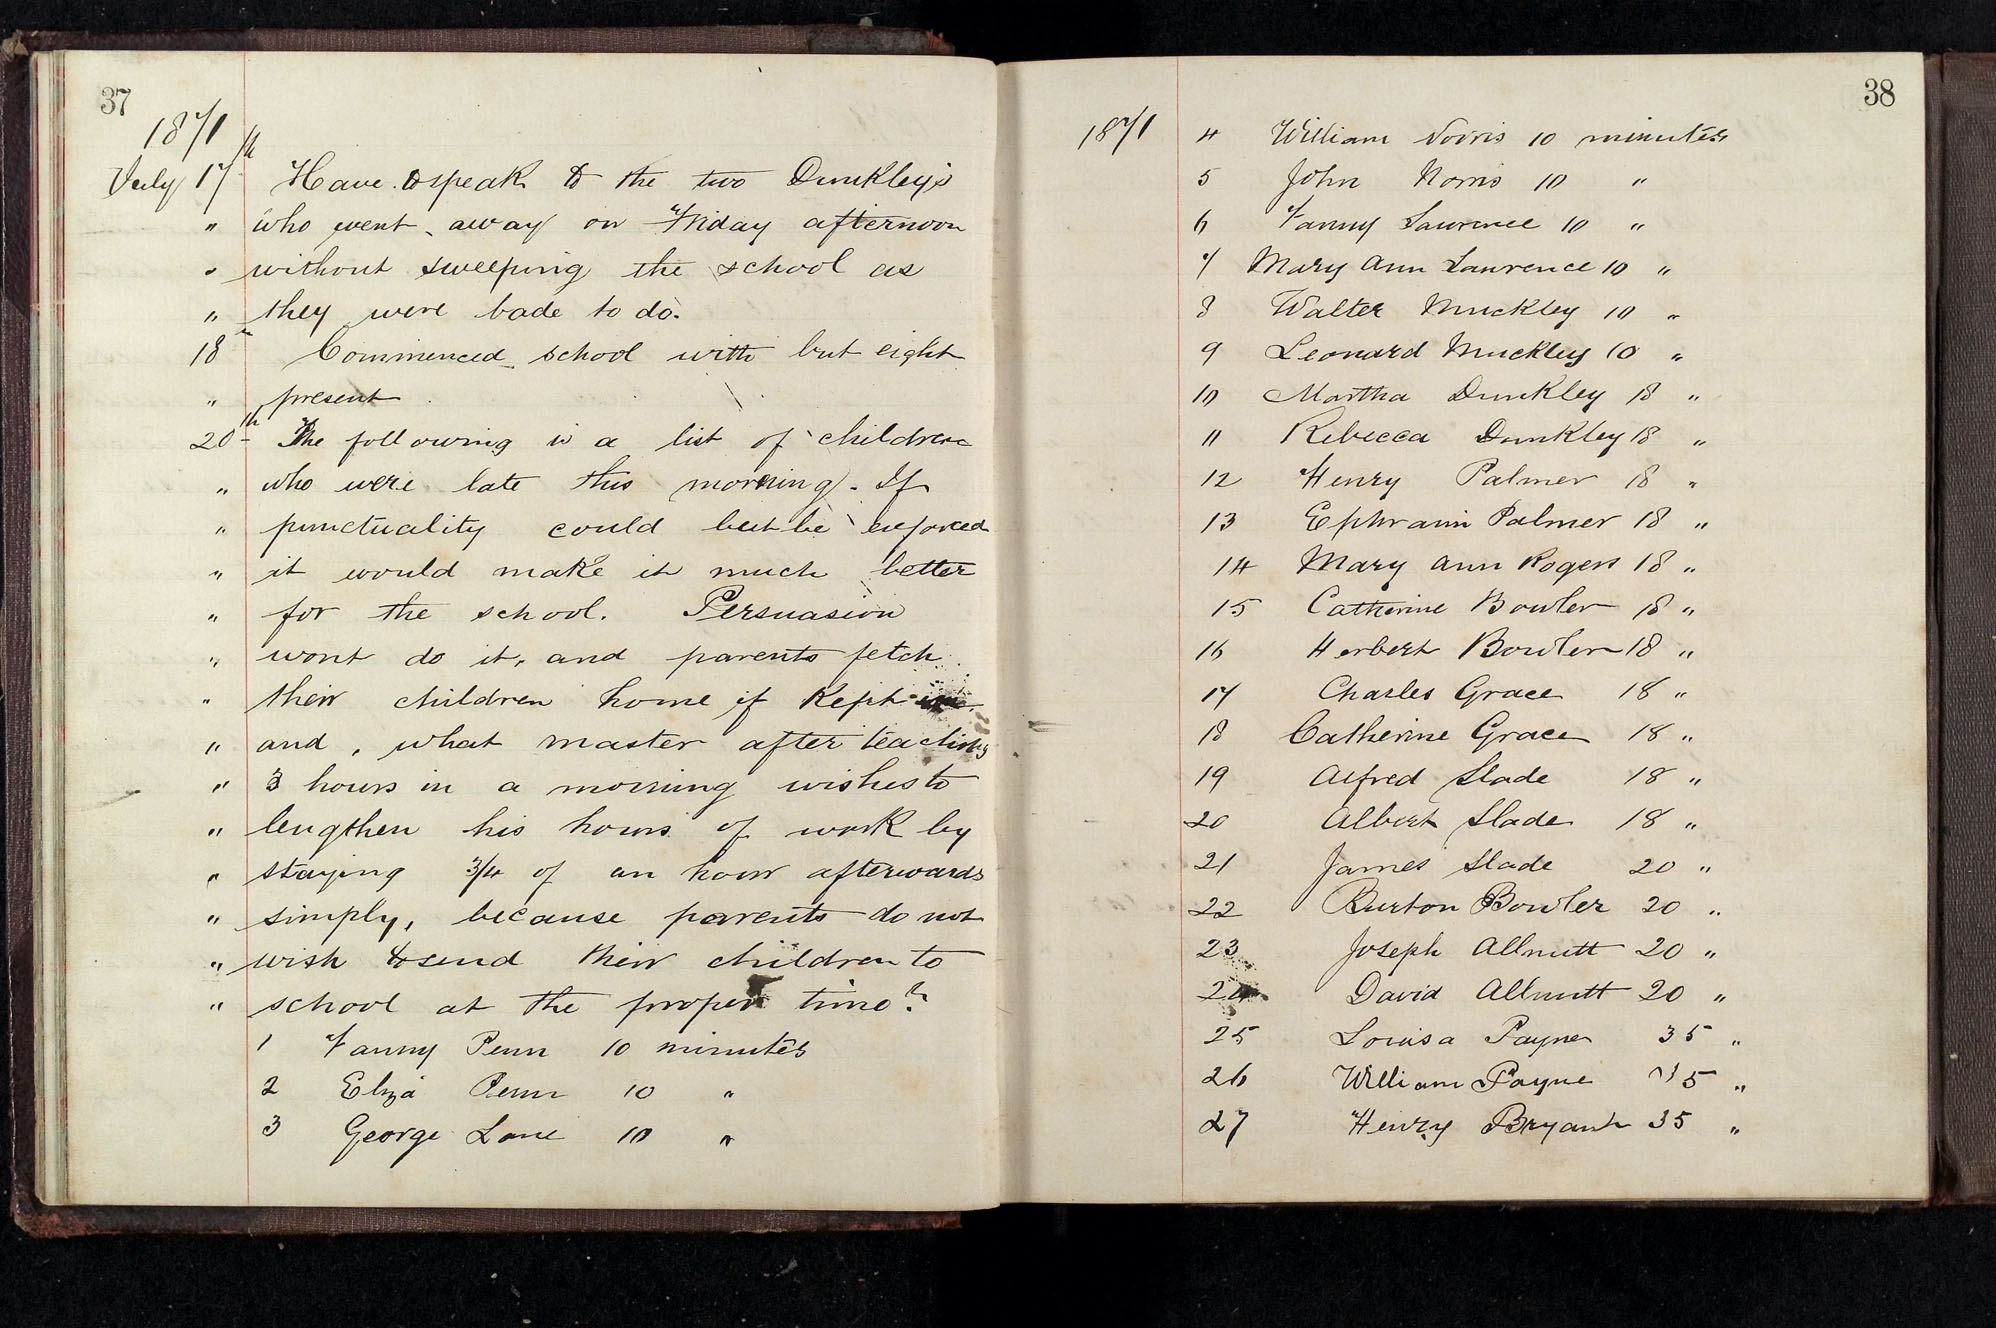 37
1871
July 17th Have to speak to the two Dunkley's
" who went away on Friday afternoon
" without sweeping the school as
" they were bade to do.
18th Commenced school with but eight
" present
20th The following is a list of children
" who were late this morning. If
" punctuality could but be enforced
" it would make it much better
" for the school. Persuasion
" wont do it, and parents fetch
" their children home if kept
" and, what master after teaching
" 3 hours in a morning wishes to
" lengthen his hours of work by
" staying 3/4 of an hour afterwards
" simply, because parents do not
" wish to send their children to
" school at the proper time?
1 Fanny Penn 10 minutes
2 Eliza Penn 10 "
3 George Lane 10 "
38
1871
4 William Norris 10 minutes
5 John Norris 10 "
6 Fanny Lawrence 10 "
7 Mary Ann Lawrence 10 "
8 Walter Muckley 10 "
9 Leonard Muckley 10 "
10 Martha Dunkley 18 "
11 Rebecca Dunkley 18 "
12 Henry Palmer 18 "
13 Ephraim Palmer 18 "
14 Mary Ann Rogers 18 "
15 Catherine Bowler 18 "
16 Herbert Bowler 18 "
17 Charles Grace 18 "
18 Catherine Grace 18 "
19 Alfred Slade 18 "
20 Albert Slade 18 "
21 James Slade 20 "
22 Burton Bowler 20 "
23 Joseph Allnutt 20 "
24 David Allnutt 20 "
25 Louisa Payne 35 "
26 William Payne 35 "
27 Henry Bryant 35 "